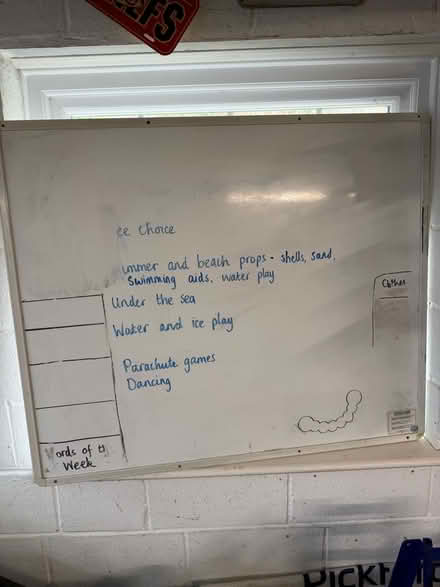 FS
ee Choice
ummer and beach props - shells, sand,
Swimming aids, water play
Under the sea
Water and ice play
Parachute games
Dancing
Clothes
Words of th
Week